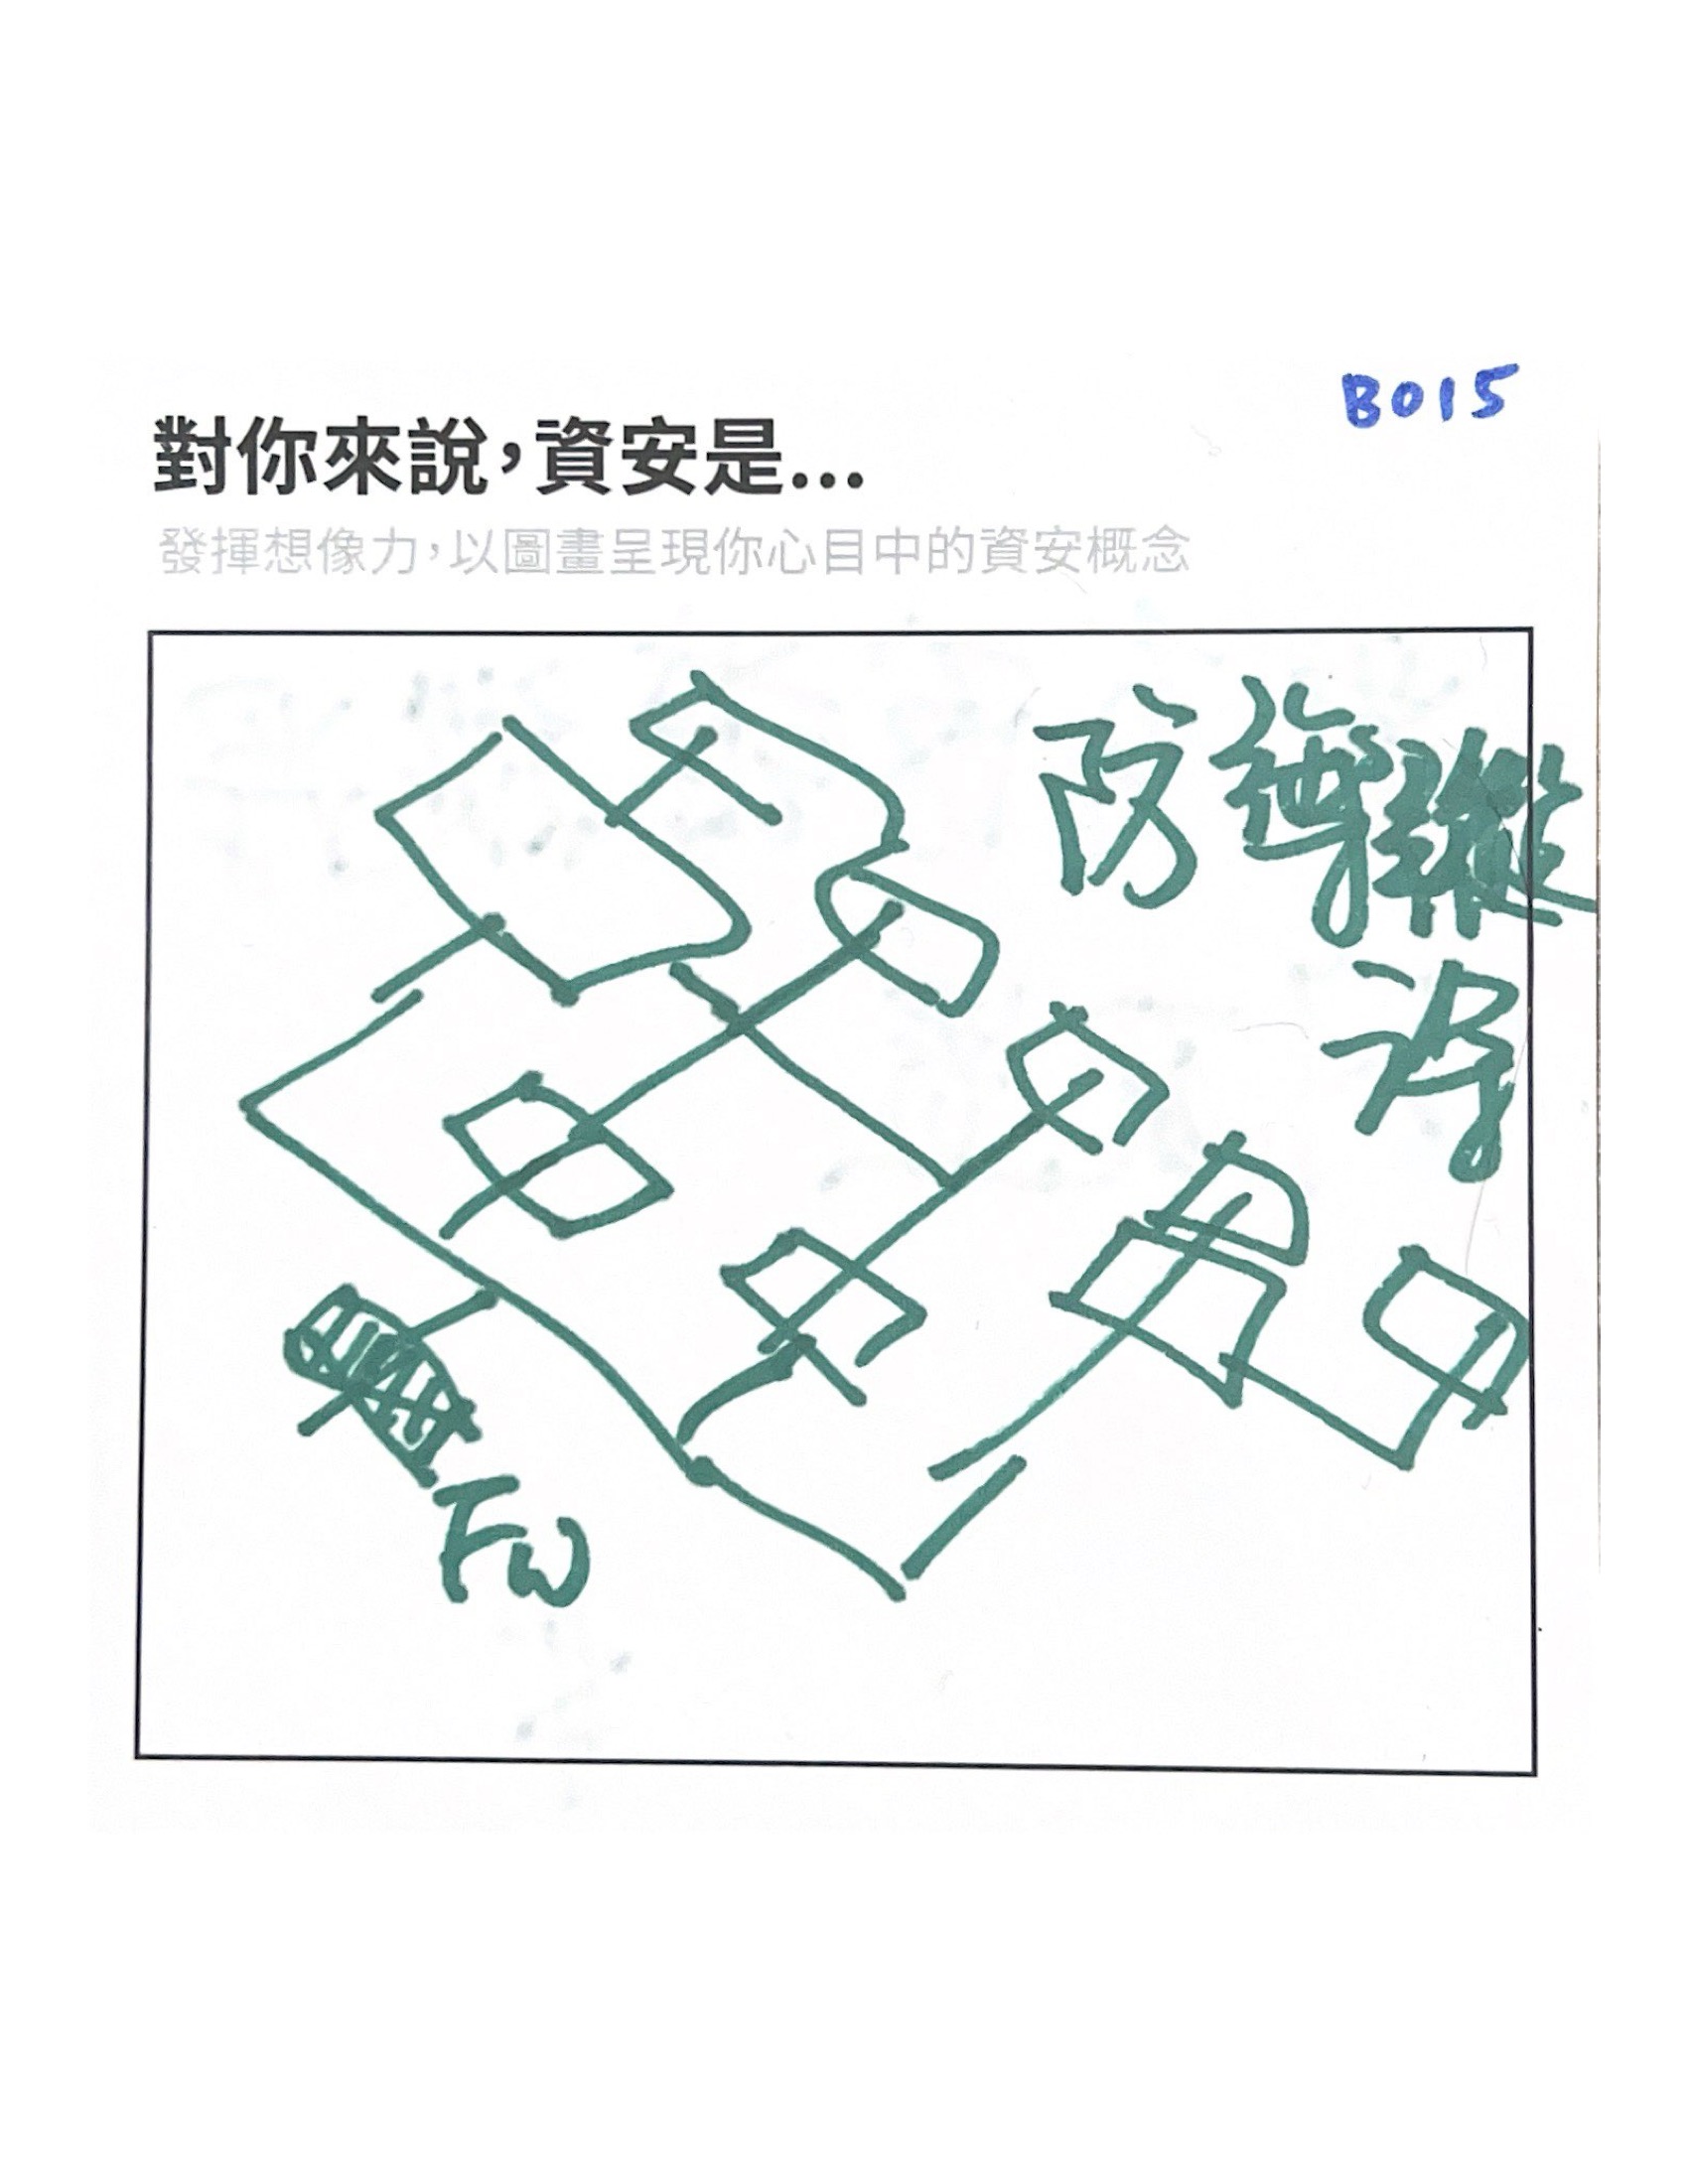 B015
對你來說，資安是...
發揮想像力，以圖畫呈現你心目中的資安概念
防護縱
深
FW